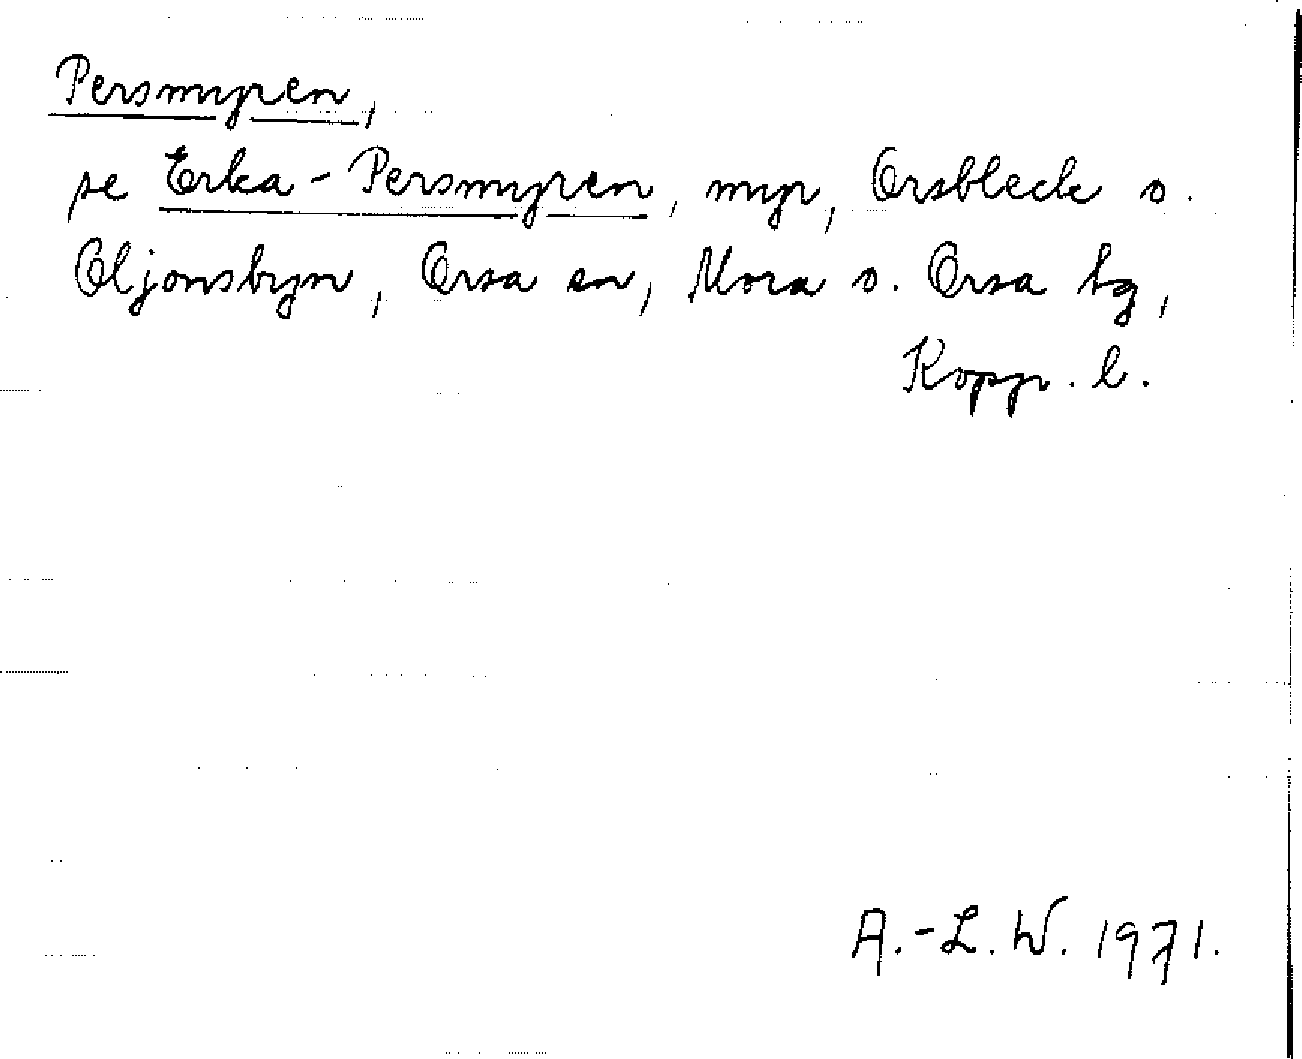 Persmyren,
se Erka-Persmyren, myr, Orsbleck o.
Oljonsbyn, Orsa sn, Mora o. Orsa tg,
Kopp. l.
A.-L. W. 1971.